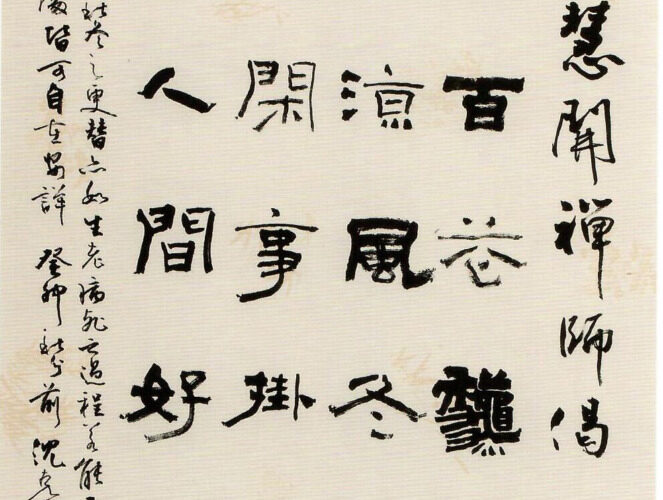 慧開禪師偈
百花龝
涼風冬
閑事掛
人間好
秋冬之更替亦如生老病死之過程若能
皆可自在安詳 癸卯秋分前 沈